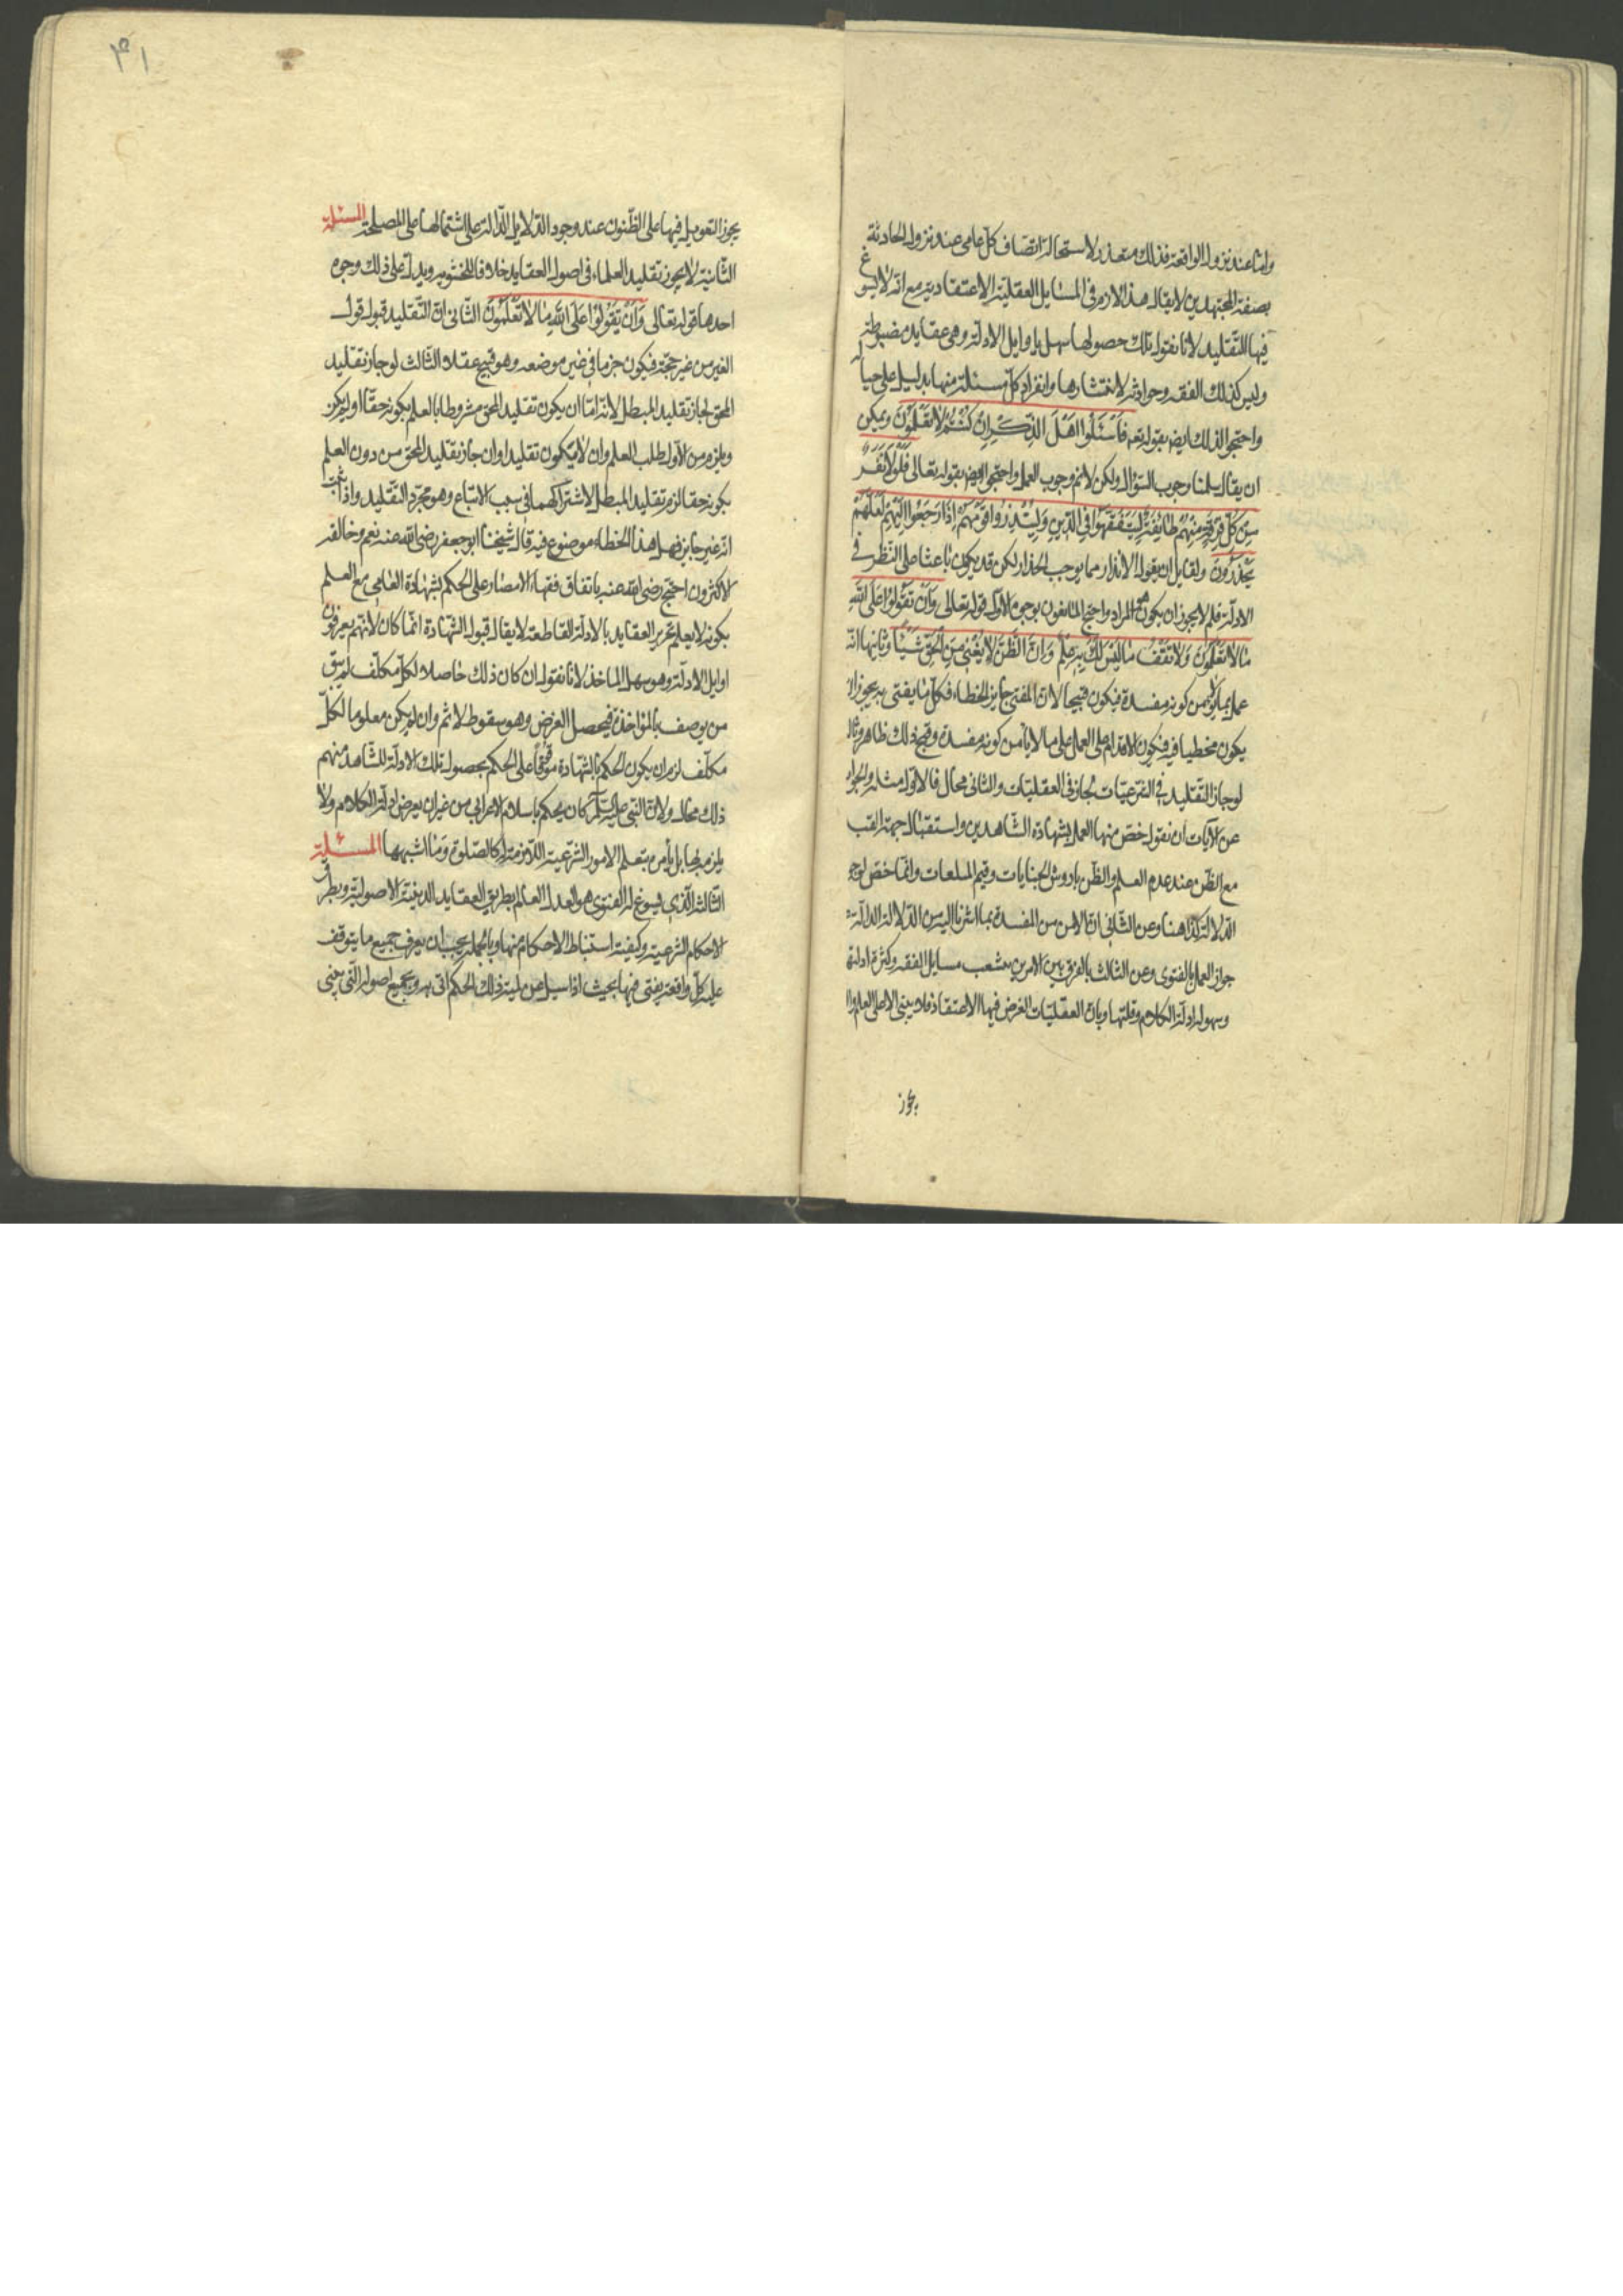 واما عند نزول الواقعة فذلك متعذر لاستحالة اتصاف كل عامي عند نزول الحادثة
بصفة المجتهدين لا يقال هذا لازم في المسايل العقلية الاعتقادية مع انه لا يسوغ
فيها التقليد لانا نقول تلك حصولها سهل باوايل الادلة وهي عقايد مضبوطة
وليس كذلك الفقه وحوادثه لانتشارها وانفراد كل مسئلة منها بدليل على حياله
واحتجوا لذلك ايض بقوله تعه فَاسْئَلُوا اَهْلَ الذِّكْرِ اِنْ كُنْتُمْ لا تَعْلَمُونَ ويمكن
ان يقال سلمنا وجوب السؤال ولكن لانم وجوب العمل واحتجوا ايض بقوله تعالى فَلَوْلا نَفَرَ
مِنْ كُلِّ فِرْقَةٍ مِنْهُمْ طايِفَةٌ لِيَتَفَقَّهُوا فِي الدّينِ وَلِيُنْذِرُوا قَوْمَهُمْ اِذا رَجَعُوا اِلَيْهِمْ لَعَلَّهُمْ
يَحْذَرُونَ ولقايل ان يقول الانذار مما يوجب الحذار لكن قد يكون باعثا على النظر في
الادلة فلم لا يجوز ان يكون هو المراد واحتج المانعون بوجوه الاول قوله تعالى وَاَنْ تَقُولُوا عَلَى اللهِ
ما لا تَعْلَمُونَ وَلا تَقْفُ ما لَيْسَ لَكَ بِهِ عِلْمٌ وَاِنَّ الظَّنَّ لا يُغْنِي مِنَ الْحَقِّ شَيْئًا وثانيها انه
عمل بما لا يؤمن كونه مفسدة فيكون قبيحا لان المفتي جايز الخطاء فكل ما يفتى به يجوز ان
يكون مخطيا فيه فيكون الاقدام على العمل على ما لا يامن كونه مفسدة وقبح ذلك ظاهر وثال
لو جاز التقليد في الشرعيات لجاز في العقليات والثاني محال فالاول مثله والجوا
عن الآيات ان نقول خص منها العمل بشهادة الشاهدين واستقبال جهة القب
مع الظن عند عدم العلم والظن باروش الجنايات وقيم المتلفات وانما خص لوجو
الدلالة كذا هنا وعن الثاني ان الامن من المفسدة بما اشرنا اليه من الدلالة الدالة
جواز العمل بالفتوى وعن الثالث بالفرق بين الامرين بتشعب مسايل الفقه وكثرة ادلته
وسهولة ادلة الكلام وقلتها وبان العقليات الغرض فيها الاعتقاد فلا يبنى الا على العلم وا
يجوز
۴۱
يجوز التعويل فيها على الظنون عند وجود الدلايل الدالة على اشتمالها على المصلحة المسئلة
الثانية لا يجوز تقليد العلماء في اصول العقايد خلافا للحشوية ويدل على ذلك وجوه
احدها قوله تعالى وَاَنْ تَقُولُوا عَلَى اللهِ ما لا تَعْلَمُونَ الثاني ان التقليد قبول قول
الغير من غير حجة فيكون جزما في غير موضعه وهو قبيح عقلا الثالث لو جاز تقليد
المحق لجاز تقليد المبطل لانه اما ان يكون تقليد المحق مشروطا بالعلم بكونه حقا او لم يكن
ويلزم من الاول طلب العلم وان لا يكون تقليدا وان جاز تقليد المحق من دون العلم
بكونه حقا لزم تقليد المبطل لاشتراكهما في سبب الاتباع وهو مجرد التقليد واذا ثبت
انه غير جايز فهل هذا الخطاء موضوع فيه قال شيخنا ابو جعفر رضى الله عنه نعم وخالفه
الاكثرون احتج رضى الله عنه باتفاق فقهاء الامصار على الحكم بشهادة العامي مع العلم
بكونه لا يعلم تحرير العقايد بالادلة القاطعة لا يقال قبول الشهادة انما كان لانهم يعرفون
اوايل الادلة وهو سهل الماخذ لانا نقول ان كان ذلك حاصلا لكل مكلف لم يبق
من يوصف بالمؤاخذة فيحصل الغرض وهو سقوط الاثم وان لم يكن معلوما لكل
مكلف لزم ان يكون الحكم بالشهادة موقوفا على الحكم بحصول تلك الادلة للشاهد منهم
ذلك محال ولان النبي عليه السلم كان يحكم باسلام الاعرابي من غير ان يعرض ادلة الكلام ولا
يلزمه بها بل يأمره بتعلم الامور الشرعية اللازمة له كالصلوة وما اشبهها المسئلة
الثالثة الذي يسوغ له الفتوى هو العدل العالم بطريق العقايد الدينية الاصولية وبطرق
الاحكام الشرعية وكيفية استنباط الاحكام منها وبالجملة يجب ان يعرف جميع ما يتوقف
عليه كل واقعة يفتى فيها بحيث اذا سئل عن لمية ذلك الحكم اتى به وبجميع اصوله التي يبنى